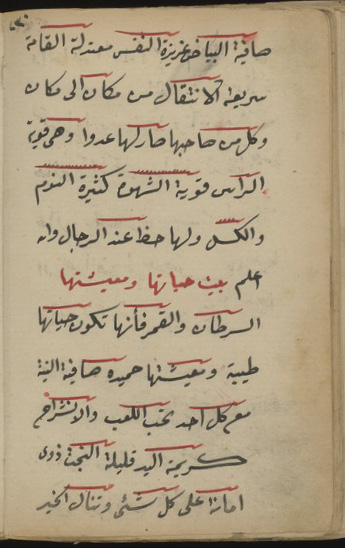 صافية البياض عزيزة النفس معتدلة القامة
سريعة الانتقال من مكان الى مكان
وكل من صاحبها صار لها عدوا وهى قوية
الراس قوية الشهوة كثيرة النوم
والكسل ولها حظ عند الرجال والله
اعلم بيت حياتها ومعيشتها
السرطان والقمر فأنها تكون حياتها
طيبة ومعيشتها حميده صافية النية
مع كل احد تحب اللعب والانشراح
كريمة اليد قليلة البخت ذوى
امانة على كل شئ وتنال الخير